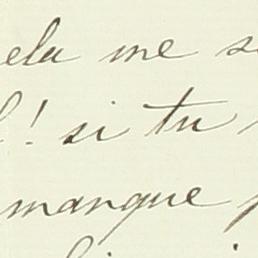 ela me s
! si tu
manque